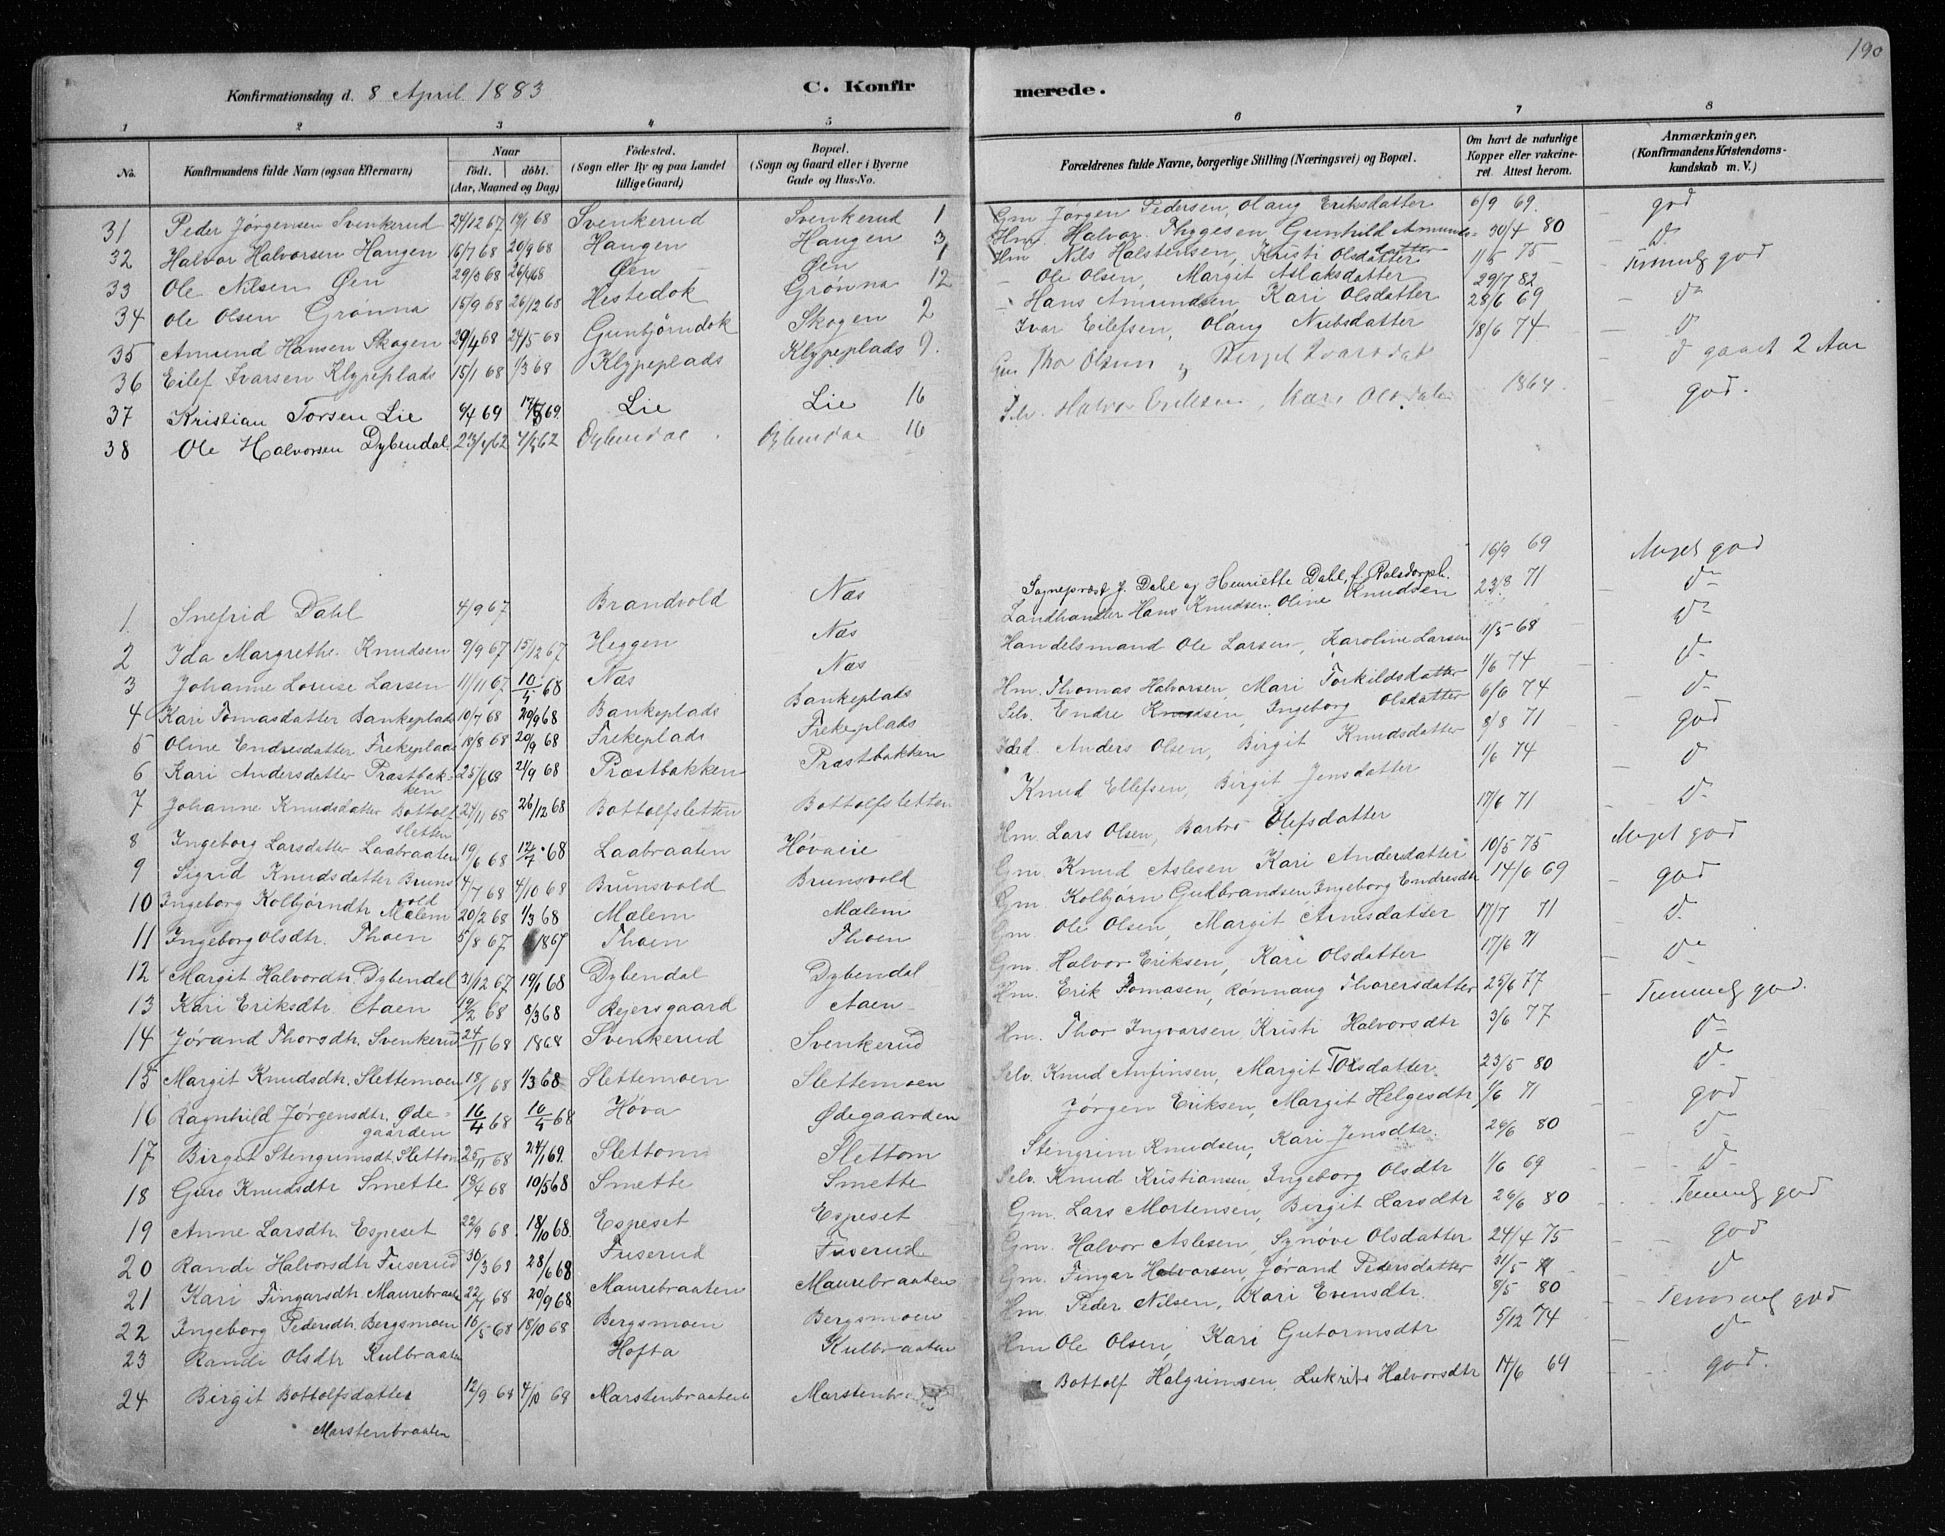 190
Konfirmationsdag d. 8 April 1883 C. Konfirmerede.
1 2 3 4 5 6 7 8
No. Konfirmandens fulde Navn (ogsaa Efternavn) Naar født. døbt. (Aar, Maaned og Dag) Fødested. (Sogn eller By og paa Landet tillige Gaard) Bopæl. (Sogn og Gaard eller i Byerne Gade og Hus-No. Forældrenes fulde Navne, borgerlige Stilling (Næringsvei) og Bopæl. Om havt de naturlige Kopper eller vakcineret. Attest herom. Anmærkninger. (Konfirmandens Kristendomskundskab m. V.)
31 Peder Jørgensen Svenkerud 24/12 67 19/1 68 Svenkerud Svenkerud 1 Gm Jørgen Pedersen, Olaug Eriksdatter 6/9 69. god
32 Halvor Halvorsen Haugen 16/7 68 20/9 68 Haugen Haugen 3 Hm. Halvor Thygesen Gunhild Amunds- 30/4 80 d
33 Ole Nilsen Øen 29/3 68 26/4 68 Øen Øen 1 Hm Nils Halstensen, Kristi Olsdatter 11/5 75 Temmel god
34 Ole Olsen Grønna 15/9 68 26/12 68 Hestedok Grønna 12 Ole Olsen, Margit Aslaksdatter 29/7 82 d
35 Amund Hansen Skogen 29/4 68 24/5 68 Gunbjørndok Skogen 2 Hans Amundsen Kari Olsdatter 28/6 69 d
36 Eilef Ivarsen Klypeplads 15/1 68 1/3 68 Klypeplads Klypeplads 9. Ivar Eilefsen, Olaug Nubsdatter 18/6 74 d gaaet 2 Aar
37 Kristian Torsen Lie 9/4 69 17/5 69. Lie Lie 16 Gm Thor Olsen, Birgit Ivarsdat god.
38 Ole Halvorsen Dybendal. 23/4 62 4/5 62 Dybendal Dybendal 16 Selv. Halvor Eriksen, Kari Olsdatter 1864
1. Snefrid Dahl 4/9 67 Brandvold Næs Sognepræst J. Dahl og Henriette Dahl, f. Ralsdorph. 16/9 69 Meget god
2 Ida Margrethe Knudsen 9/9 67 15/12 67 Heggen Næs Landhandler Hans Knudsen, Oline Knudsen 23/8 71 d
3 Johanne Louise Larsen 11/11 67 10/5 68 Næs Næs Handelsmand Ole Larsen, Karoline Larsen 11/5 68 d
4 Kari Tomasdatter Bankeplads 10/7 68 20/9 68 Bankeplads Bankeplads Hm. Thomas Halvorsen, Mari Torkildsdatter 1/6 74 d
5 Oline Endresdatter Frekeplads 18/8 68 20/9 68 Frekeplads Frekeplads Selv. Endre Knudsen, Ingeborg Olsdatter 6/6 74 d
6 Kari Andersdatter Præstbakken 25/6 68 21/9 68 Præstbakken Præstbakken Anders Olsen, Birgit Knudsdatter 8/8 71 god
7 Johanne Knudsdatter Bottolfsletten 24/11 68 26/12 68 Bottolfsletten Bottolfsletten Knud Ellefsen, Birgit Jensdatter 1/6 74 d
8 Ingeborg Larsdatter Laabraaten 19/6 68 12/7 68 Laabraaten Høvaeie Hm. Lars Olsen, Barbro Olefsdatter 17/6 71 d
9 Sigrid Knudsdatter Brunsvold 4/7 68 4/10 68 Brunsvold Brunsvold Gm. Knud Aslesen Kari Andersdatter 10/5 75 Meget god
10 Ingeborg Kolbjørndtr Mælem 20/2 68 1/3 68 Mælem Mælem Gm. Kolbjørn Gudbrandsen Ingeborg Endresdtr 14/6 69 god
11 Ingeborg Olsdtr. Thoen 5/8 67 1867 Thoen Thoen Gm. Ole Olsen, Margit Arnesdatter 17/7 71 d
12 Margit Halvordtr. Dybendal 31/12 67 19/1 68 Dybendal Dybendal Gm. Halvor Eriksen, Kari Olsdatter 17/6 71 d
13 Kari Eriksdtr. Aaen 19/2 68 8/3 68 Rejersgaard Aaen Hm. Erik Tomasen, Rønnaug Thorersdatter 25/6 77 Temmel god.
14 Jørand Thorsdtr. Svenkerud 24/11 68 1868 Svenkerud Svenkerud Hm. Thor Ingvarsen Kristi Halvorsdtr 3/6 77 d
15 Margit Knudsdtr. Slettemoen 18/1 68 1/3 68 Slettemoen Slettemoen Selv. Knud Anfinsen, Margit Tolsdatter. 23/5 80 d
16 Ragnhild Jørgensdtr. Ødegaarden 16/4 68 10/5 68 Høva Ødegaarden Jørgen Eriksen, Margit Helgesdtr 1/6 71 god
17 Birgit Stengrimsdt. Slettom 25/11 68 24/1 69. Slettom Slettom Stengrim Knudsen, Kari Jensdtr. 29/6 80 d
18 Guro Knudsdtr Smette 13/4 68 10/5 68 Smette Smette Selv. Knud Kristiansen, Ingeborg Olsdtr 1/6 69 d
19 Anne Larsdtr. Espeset 22/9 68 18/10 68. Espeset Espeset Gm. Lars Mortensen, Birgit Larsdtr 29/6 80 Temmel god
20 Randi Halvorsdtr Tuserud 30/3 68 28/6 68 Tuserud Tuserud Gm. Halvor Aslesen, Synøve Olsdatter 24/4 75 god
21 Kari Fingarsdtr. Maurebraaten 22/7 68 20/9 68 Maurebraaten Maurebraaten Gm. Fingar Halvorsen, Jørand Pedersdatter 31/5 71 d
22 Ingeborg Pedersdtr. Bergsmoen 16/5 68 18/10 68 Bergsmoen Bergsmoen Hm. Peder Nilsen, Kari Evensdtr. 8/5 80 Temmel god
23 Randi Olsdtr Kulbraaten Hofta Kulbraaten Hm Ole Olsen, Kari Gutormsdtr 5/12 74 d
24 Birgit Bottolfsdatter Marstenbraaten 12/9 68 4/10 68 Marstenbraaten Marstenbraaten Bottolf Halgrimsen, Lukris Halvorsdtr 14/6 69 god.